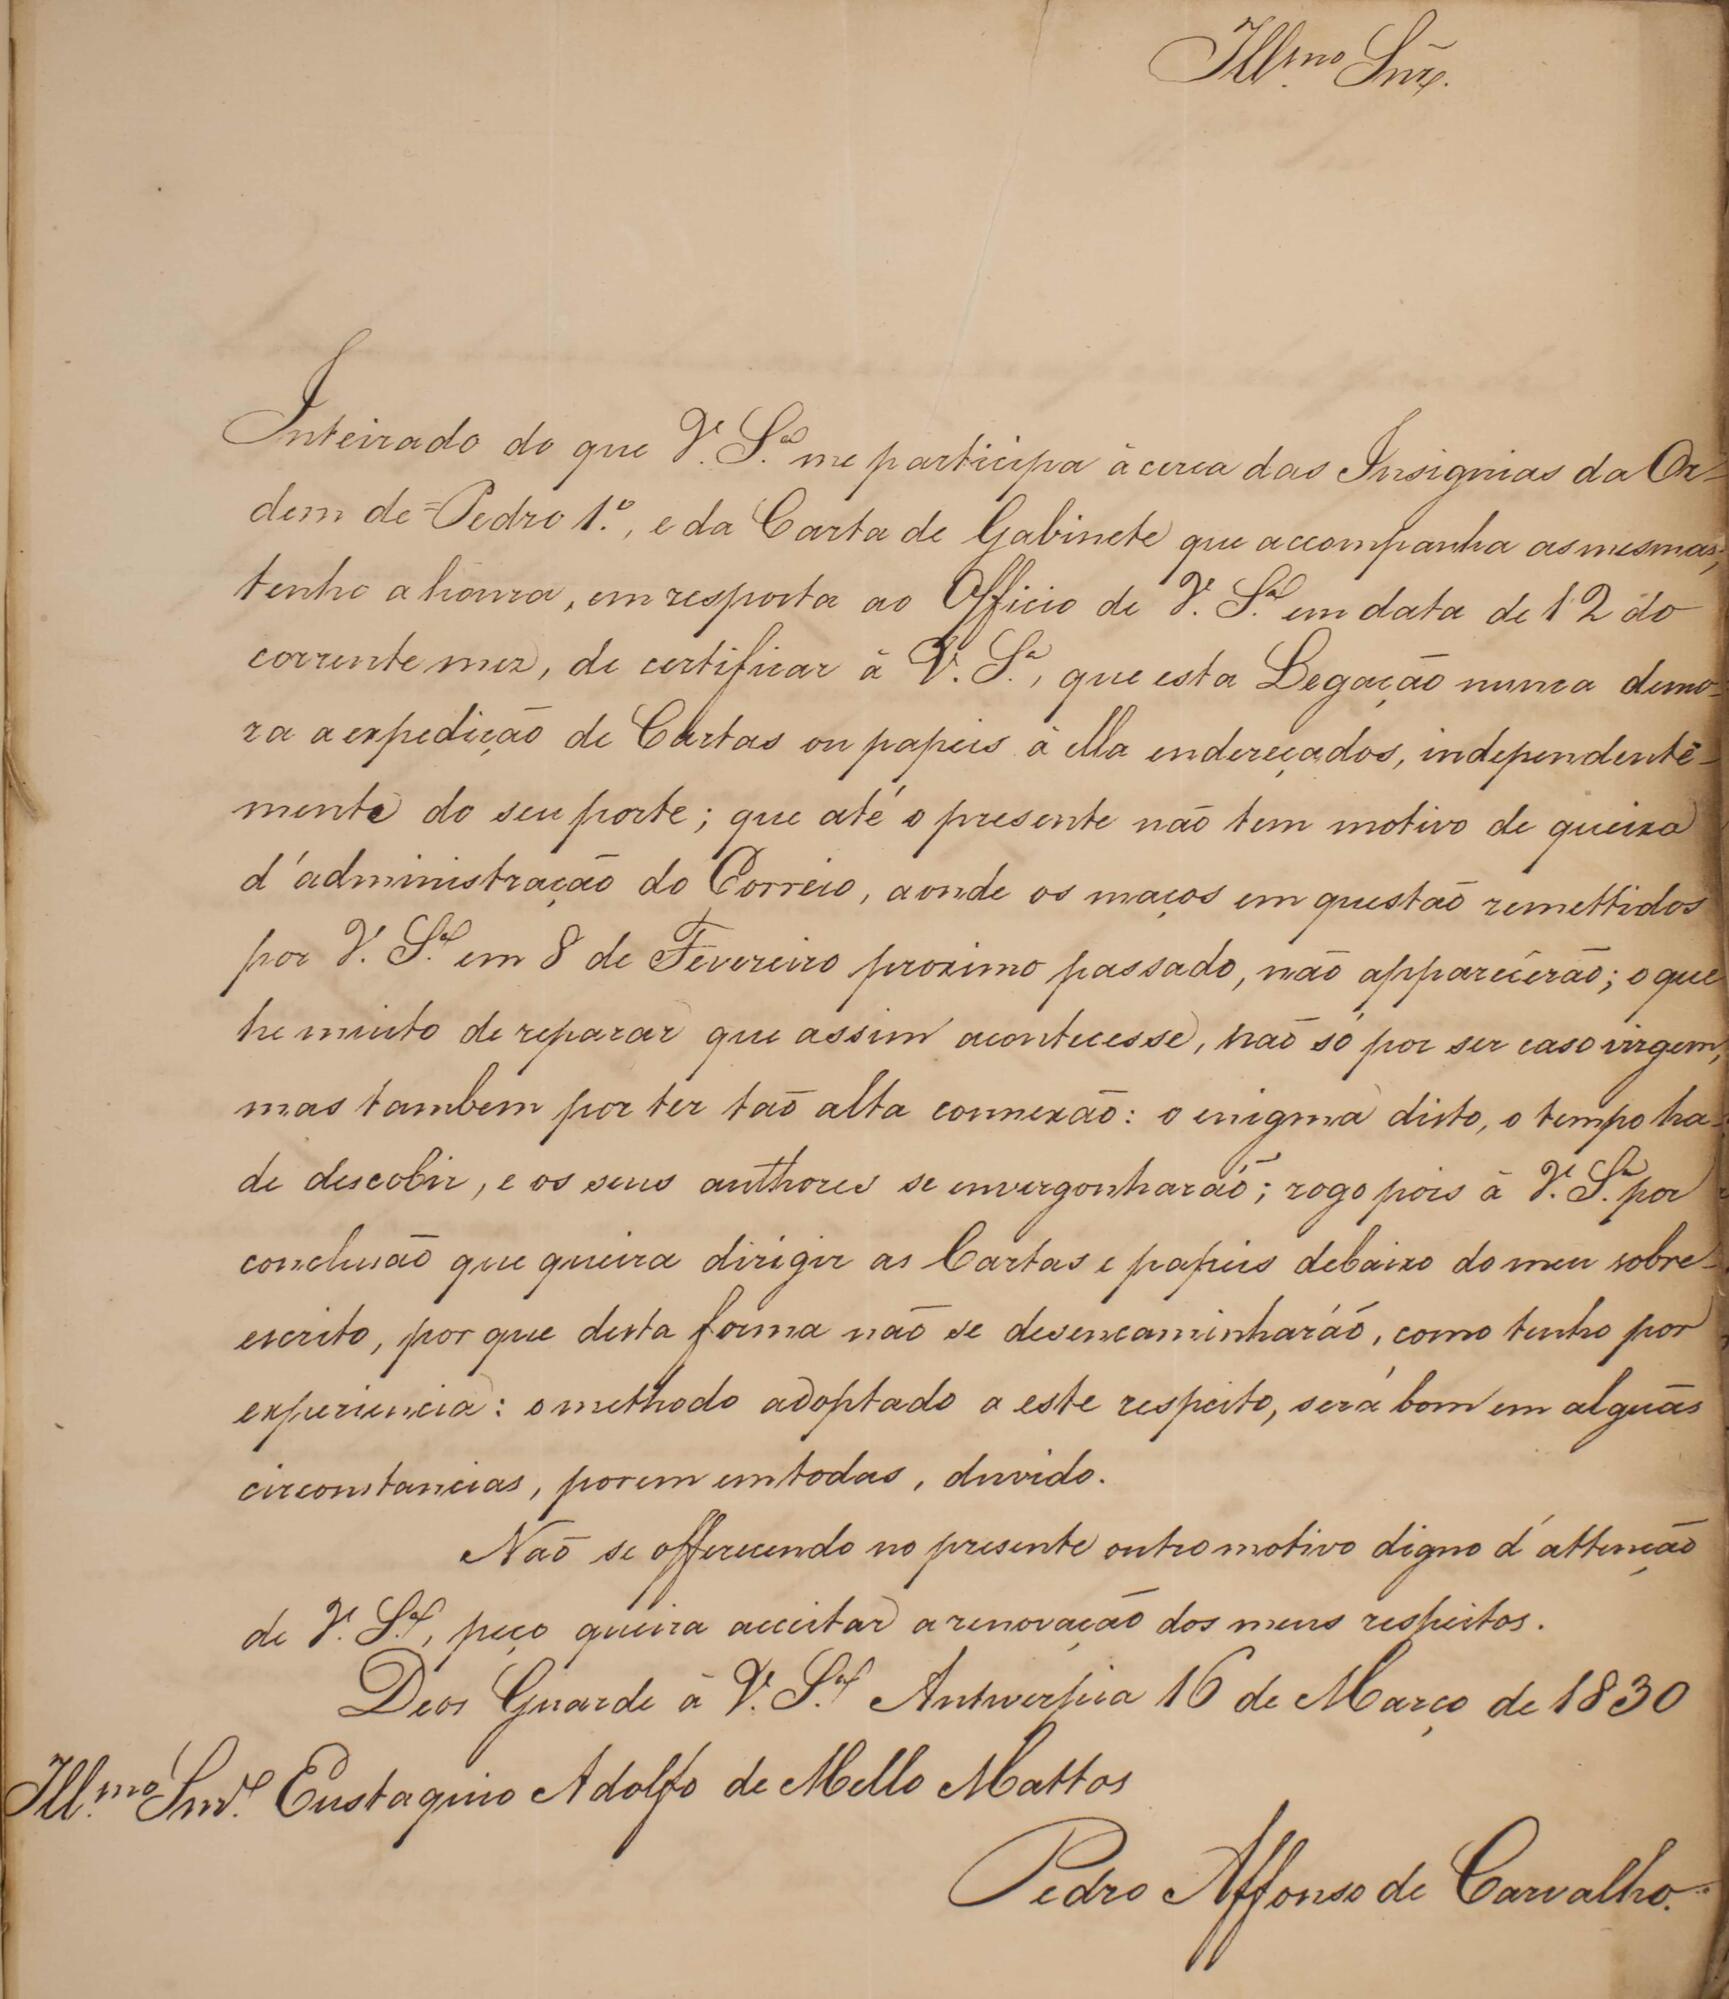 Ill.mo Snr.
Inteirado do que V. S.a me participa ácerca das Insignias da Or-
dem de =Pedro 1.º, e da Carta de Gabinete que accompanha as mesmas,
tenho a honra, em resposta ao Officio de V. S.a em data de 12 do
corrente mez, de certificar á V. S.a, que esta Legação nunca demo-
ra a expedição de Cartas ou papeis á ella endereçados, independentê-
mente do seu porte; que até o presente não tem motivo de queixa
d'administração do Correio, aonde os maços em questão remettidos
por V. S.a em 8 de Fevereiro proximo passado, não apparecêrão; o que
he muito de reparar que assim acontecesse, não só por ser caso virgem,
mas tambem por ter taõ alta connexão: o enigma disto, o tempo ha-
de descobir, e os seus authores se envergonharáõ; rogo pois á V. S.a por
conclusão que queira dirigir as Cartas e papeis debaixo do meu sobre-
escrito, por que desta forma não se desencaminharáõ, como tenho por
experiencia: o methodo adoptado a este respeito, será bom em alguãs
circonstancias, porem em todas, duvido.
Não se offerecendo no presente outro motivo digno d'attenção
de V. S.a, peço queira acceitar a renovação dos meus respeitos.
Deos Guarde á V. S.a Antwerpia 16 de Março de 1830
Ill.mo Snr. Eustaquio Adolfo de Mello Mattos
Pedro Affonso de Carvalho.